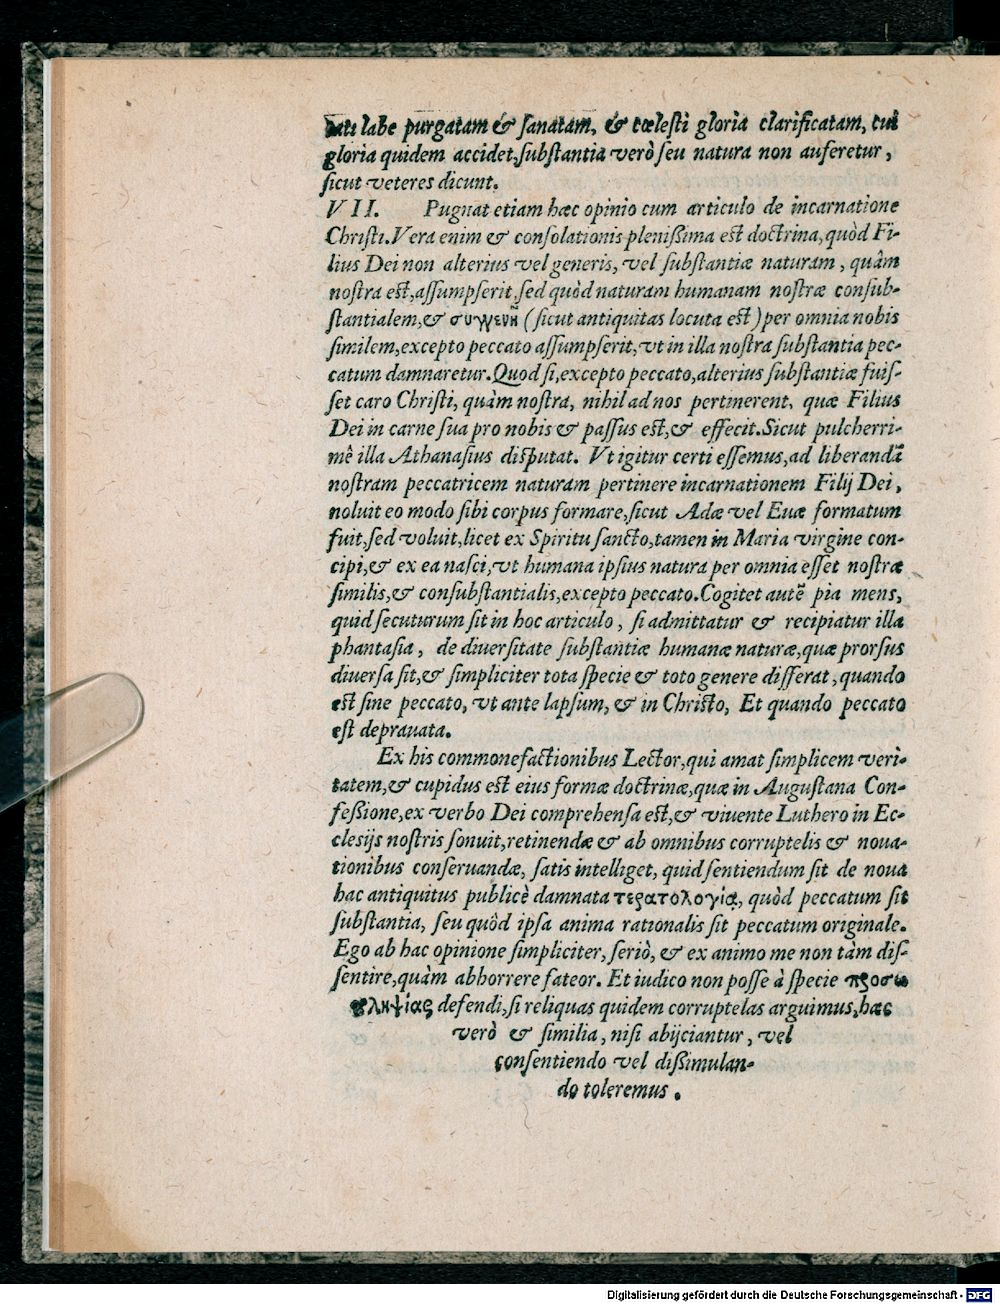 cati labe purgatam & sanatam, & cœlesti gloria clarificatam, cui
gloria quidem accidet, substantia verò seu natura non auferetur,
sicut veteres dicunt.
VII. Pugnat etiam hæc opinio cum articulo de incarnatione
Christi. Vera enim & consolationis plenißima est doctrina, quòd Fi-
lius Dei non alterius vel generis, vel substantiæ naturam, quàm
nostra est, assumpserit, sed quòd naturam humanam nostræ consub-
stantialem, & συγγενῆ (sicut antiquitas locuta est) per omnia nobis
similem, excepto peccato assumpserit, vt in illa nostra substantia pec-
catum damnaretur. Quod si, excepto peccato, alterius substantiæ fuis-
set caro Christi, quàm nostra, nihil ad nos pertinerent, quæ Filius
Dei in carne sua pro nobis & passus est, & effecit. Sicut pulcherri-
mè illa Athanasius disputat. Vt igitur certi essemus, ad liberandã
nostram peccatricem naturam pertinere incarnationem Filij Dei,
noluit eo modo sibi corpus formare, sicut Adæ vel Euæ formatum
fuit, sed voluit, licet ex Spiritu sancto, tamen in Maria virgine con-
cipi, & ex ea nasci, vt humana ipsius natura per omnia esset nostræ
similis, & consubstantialis, excepto peccato. Cogitet autẽ pia mens,
quid secuturum sit in hoc articulo, si admittatur & recipiatur illa
phantasia, de diuersitate substantiæ humanæ naturæ, quæ prorsus
diuersa sit, & simpliciter tota specie & toto genere differat, quando
est sine peccato, vt ante lapsum, & in Christo, Et quando peccato
est deprauata.
Ex his commonefactionibus Lector, qui amat simplicem veri-
tatem, & cupidus est eius formæ doctrinæ, quæ in Augustana Con-
feßione, ex verbo Dei comprehensa est, & viuente Luthero in Ec-
clesijs nostris sonuit, retinendæ & ab omnibus corruptelis & noua-
tionibus conseruandæ, satis intelliget, quid sentiendum sit de noua
hac antiquitus publicè damnata τερατολογίᾳ, quòd peccatum sit
substantia, seu quòd ipsa anima rationalis sit peccatum originale.
Ego ab hac opinione simpliciter, seriò, & ex animo me non tàm dis-
sentire, quàm abhorrere fateor. Et iudico non posse à specie προσω
ποληψίας defendi, si reliquas quidem corruptelas arguimus, hæc
verò & similia, nisi abijciantur, vel
consentiendo vel dißimulan-
do toleremus.
Digitalisierung gefördert durch die Deutsche Forschungsgemeinschaft - DFG